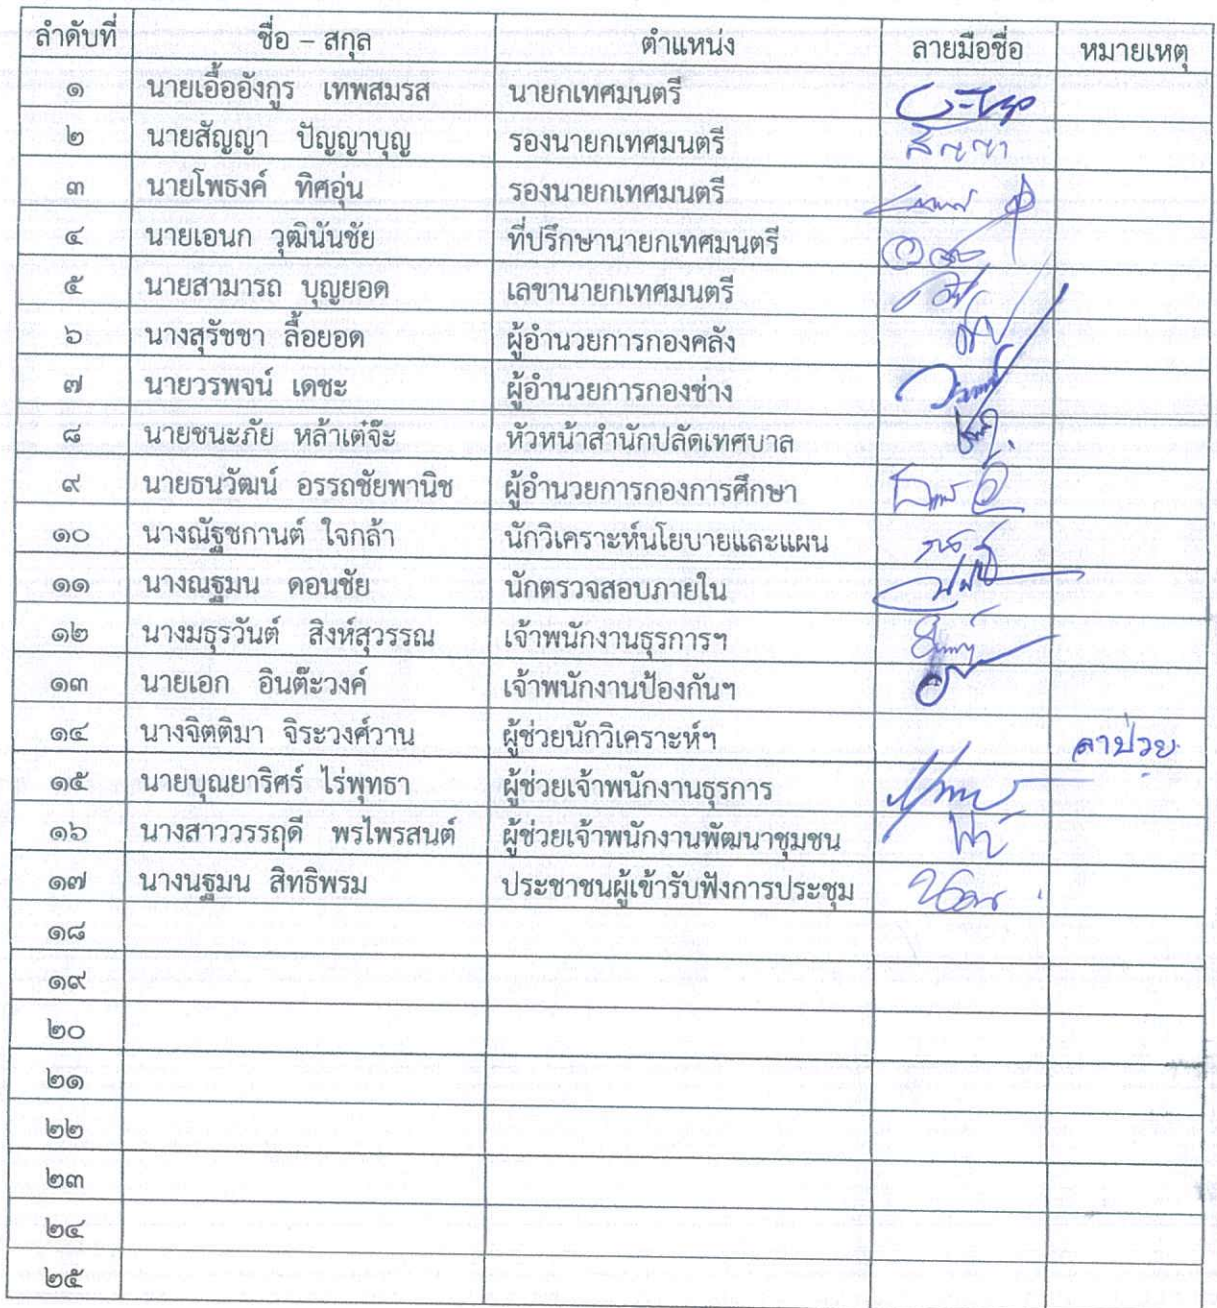 ลำดับที่ ชื่อ – สกุล ตำแหน่ง ลายมือชื่อ หมายเหตุ
๑ นายเอื้ออังกูร เทพสมรส นายกเทศมนตรี
๒ นายสัญญา ปัญญาบุญ รองนายกเทศมนตรี สัญญา
๓ นายโพธงค์ ทิศอุ่น รองนายกเทศมนตรี
๔ นายเอนก วุฒินันชัย ที่ปรึกษานายกเทศมนตรี
๕ นายสามารถ บุญยอด เลขานายกเทศมนตรี
๖ นางสุรัชชา ลื้อยอด ผู้อำนวยการกองคลัง
๗ นายวรพจน์ เดชะ ผู้อำนวยการกองช่าง
๘ นายชนะภัย หล้าเต๋จ๊ะ หัวหน้าสำนักปลัดเทศบาล
๙ นายธนวัฒน์ อรรถชัยพานิช ผู้อำนวยการกองการศึกษา
๑๐ นางณัฐชกานต์ ใจกล้า นักวิเคราะห์นโยบายและแผน
๑๑ นางณฐมน ดอนชัย นักตรวจสอบภายใน
๑๒ นางมธุรวันต์ สิงห์สุวรรณ เจ้าพนักงานธุรการฯ
๑๓ นายเอก อินต๊ะวงค์ เจ้าพนักงานป้องกันฯ
๑๔ นางจิตติมา จิระวงศ์วาน ผู้ช่วยนักวิเคราะห์ฯ ลาป่วย
๑๕ นายบุณยาริศร์ ไร่พุทธา ผู้ช่วยเจ้าพนักงานธุรการ
๑๖ นางสาววรรฤดี พรไพรสนต์ ผู้ช่วยเจ้าพนักงานพัฒนาชุมชน
๑๗ นางนฐมน สิทธิพรม ประชาชนผู้เข้ารับฟังการประชุม
๑๘
๑๙
๒๐
๒๑
๒๒
๒๓
๒๔
๒๕